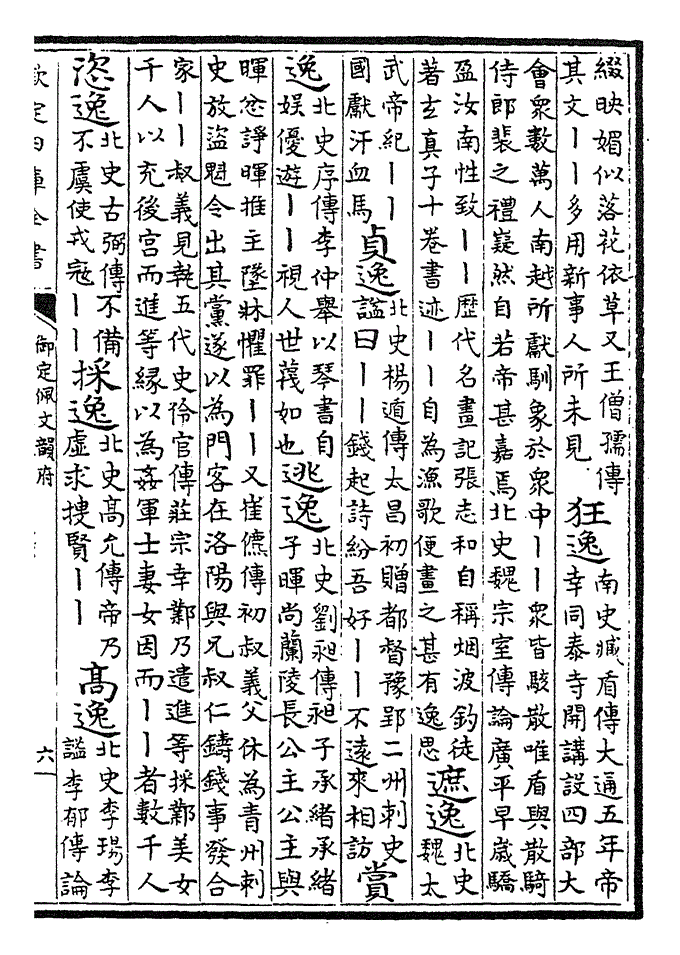 綴映媚似落花依草又王僧孺傳
其文丨丨多用新事人所未見
狂逸
南史臧盾傳大通五年帝
幸同泰寺開講設四部大
會衆數萬人南越所獻馴象於衆中丨丨衆皆駭散唯盾與散騎
侍郎裴之禮嶷然自若帝甚嘉焉北史魏宗室傳論廣平早歲驕
盈汝南性致丨丨歷代名畫記張志和自稱烟波釣徒
著玄真子十卷書迹丨丨自為漁歌便畫之甚有逸思
遮逸
北史
魏太
武帝紀丨丨
國獻汗血馬
貞逸
北史楊遁傳太昌初贈都督豫郢二州刺史
謚曰丨丨錢起詩紛吾好丨丨不遠來相訪
賞
逸
北史序傳李仲舉以琴書自
娛優遊丨丨視人世蔑如也
逃逸
北史劉昶傳昶子承緒承緒
子暉尚蘭陵長公主公主與
暉忿諍暉推主墜牀懼罪丨丨又崔傳初叔義父休為青州刺
史放盜魁令出其黨遂以為門客在洛陽與兄叔仁鑄錢事發合
家丨丨叔義見執五代史伶官傳莊宗幸鄴乃遣進等採鄴美女
千人以充後宮而進等緣以為姦軍士妻女因而丨丨者數千人
恣逸
北史古弼傳不備
不虞使戎寇丨丨
採逸
北史高允傳帝乃
虛求搜賢丨丨
高逸
北史李瑒李
謚李郁傳論
欽定四庫全書
御定佩文韻府
六